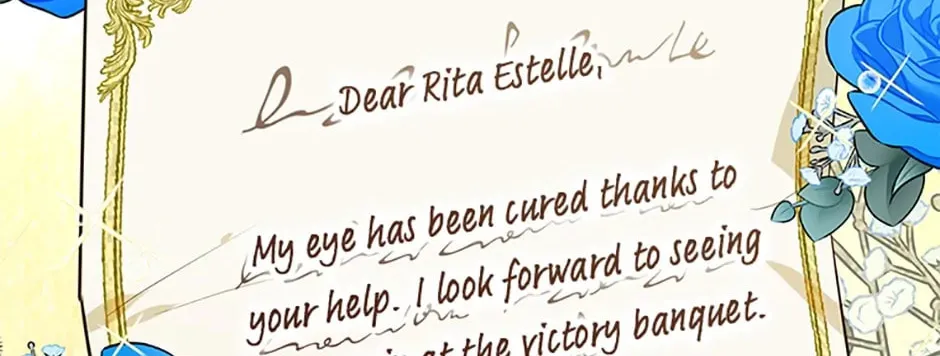 Dear Rita Estelle,
My eye has been cured thanks to
your help. I look forward to seeing
at the victory banquet.